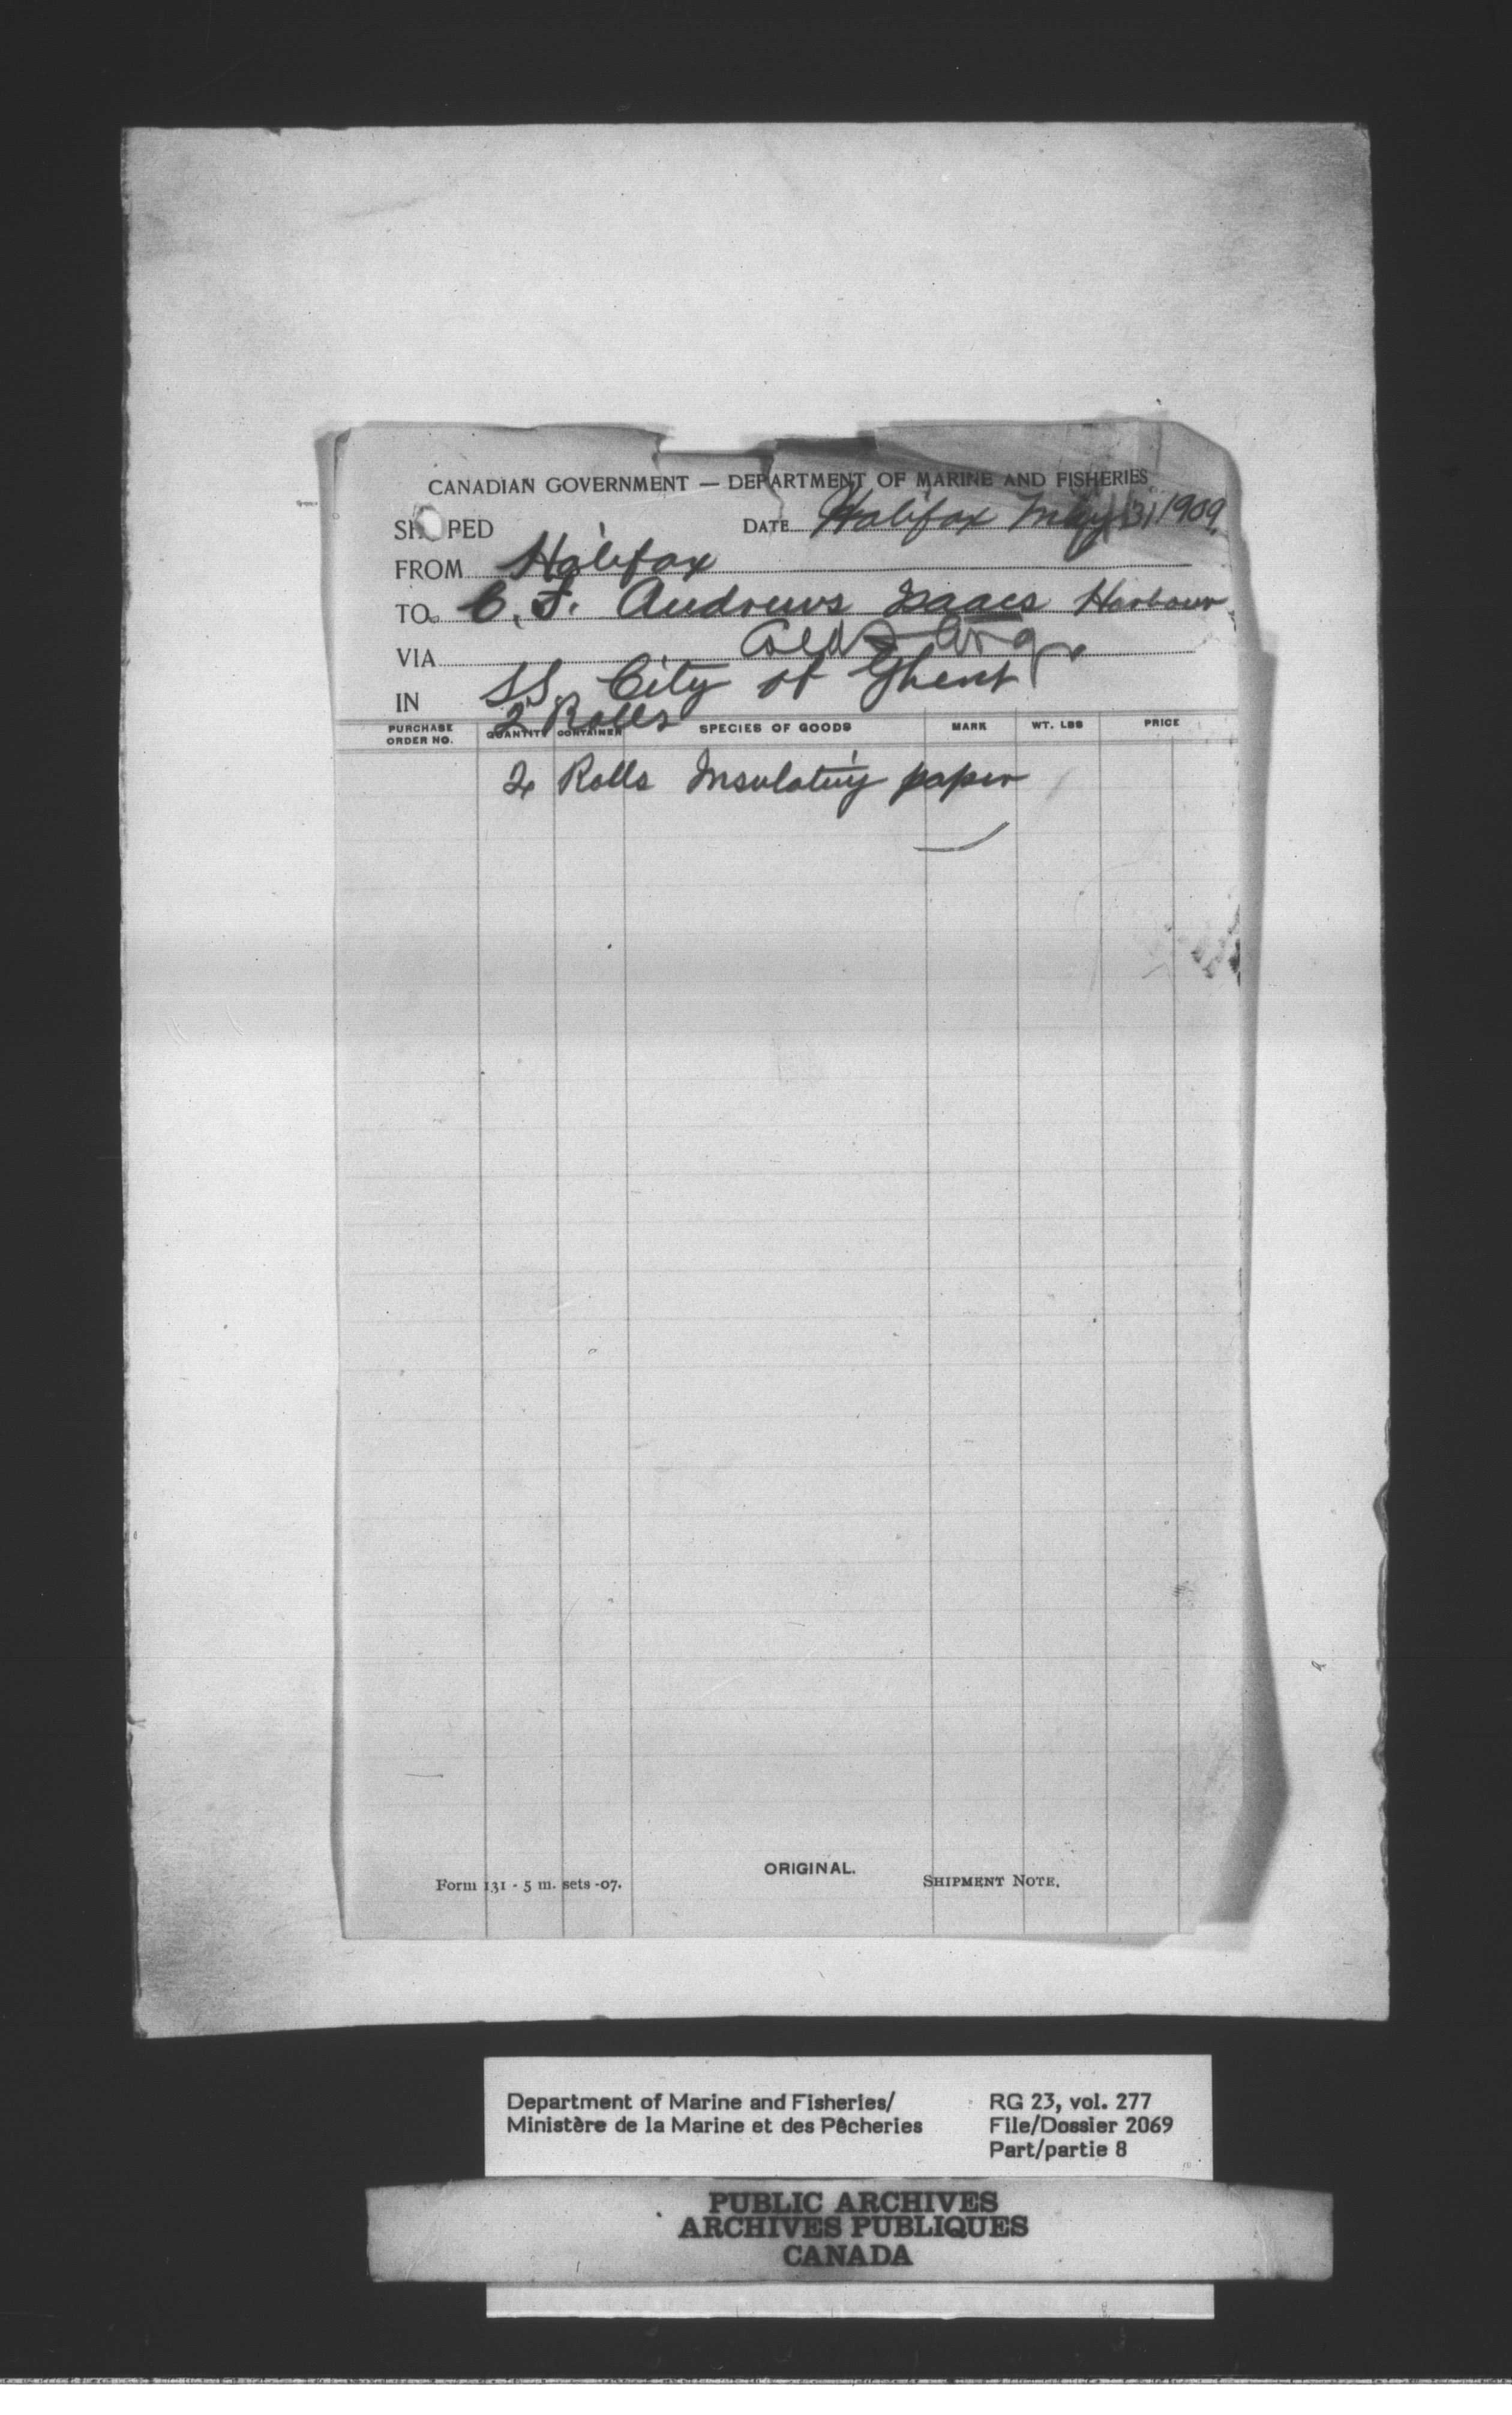 CANADIAN GOVERNMENT — DEPARTMENT OF MARINE AND FISHERIES
SHIPPED DATE Halifax May 13, 1909
FROM Halifax
TO C. F. Andrews Isaacs Harbour
VIA Cold Storage
IN SS. City of Ghent
2 Rolls
PURCHASE ORDER NO. QUANTITY CONTAINER SPECIES OF GOODS MARK WT. LBS PRICE
2 Rolls Insulating paper
ORIGINAL.
Form 131 - 5 m. sets -07. SHIPMENT NOTE.
Department of Marine and Fisheries/ RG 23, vol. 277
Ministère de la Marine et des Pêcheries File/Dossier 2069
Part/partie 8
PUBLIC ARCHIVES
ARCHIVES PUBLIQUES
CANADA